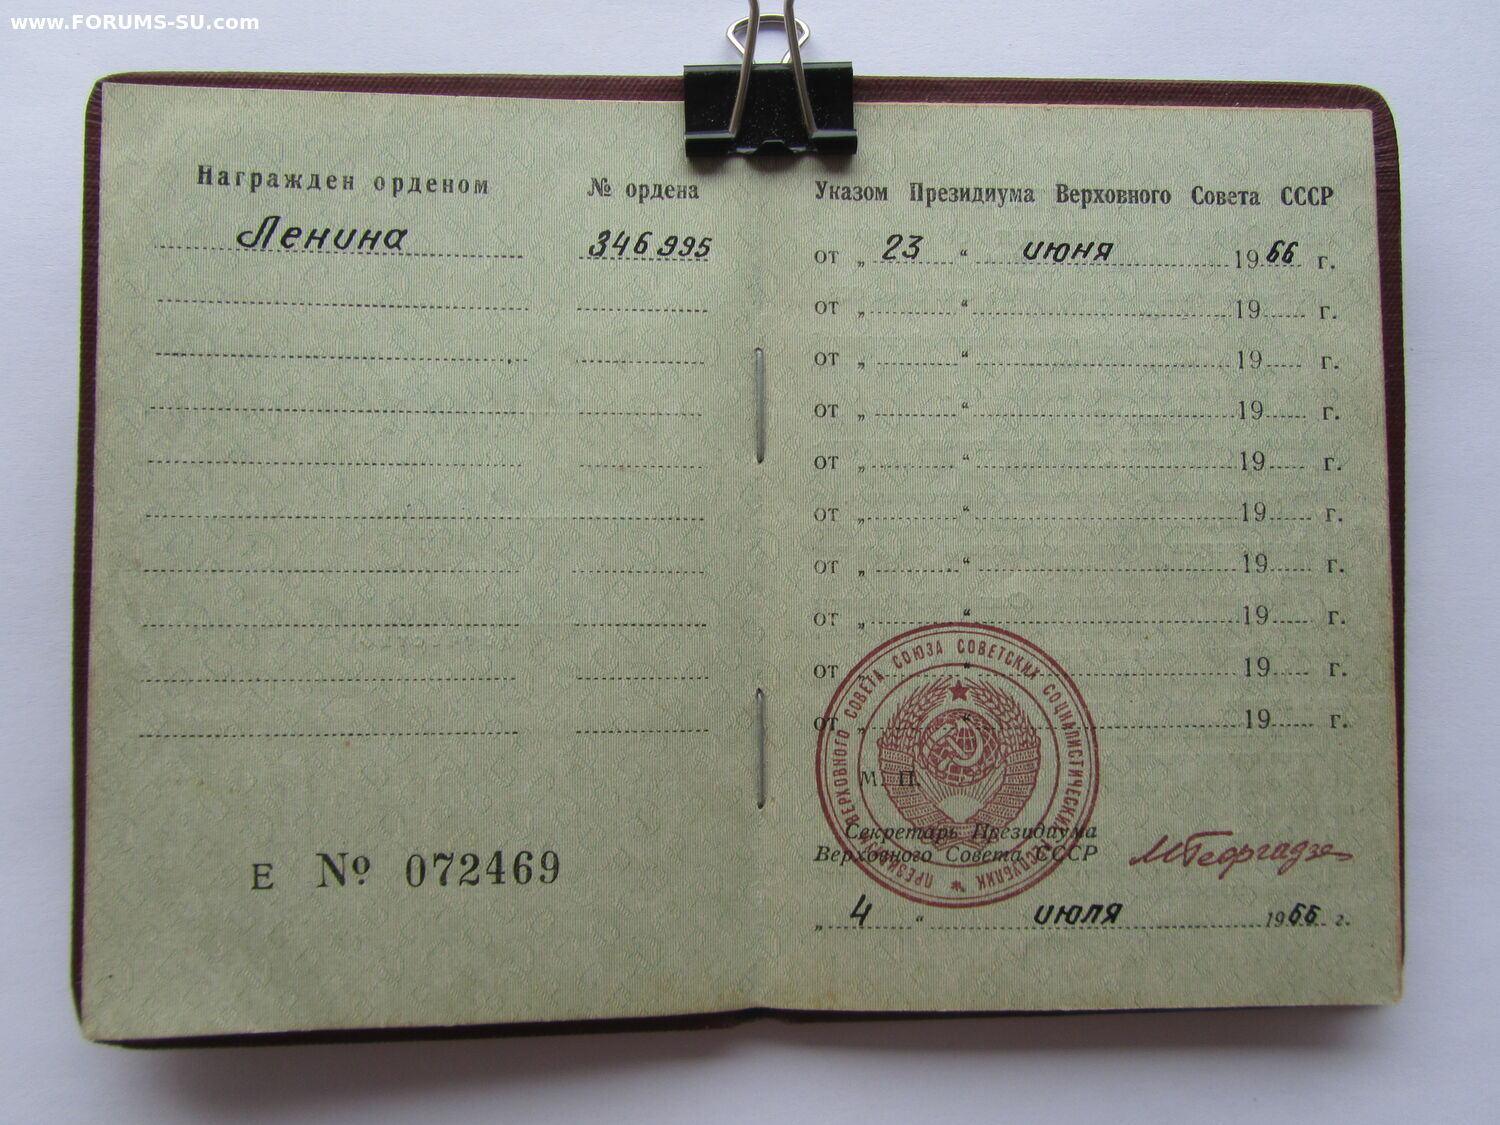 www.FORUMS-SU.com
Награжден орденом № ордена
Ленина 346995
Е № 072469
Указом Президиума Верховного Совета СССР
от „ 23 “ июня 1966 г.
от „ “ 19 г.
от „ “ 19 г.
от „ “ 19 г.
от „ “ 19 г.
от „ “ 19 г.
от „ “ 19 г.
от „ “ 19 г.
от „ “ 19 г.
от „ “ 19 г.
ПРЕЗИДИУМ ВЕРХОВНОГО СОВЕТА СОЮЗА СОВЕТСКИХ СОЦИАЛИСТИЧЕСКИХ РЕСПУБЛИК
М. П.
Секретарь Президиума
Верховного Совета СССР МГеоргадзе
„ 4 “ июля 1966 г.